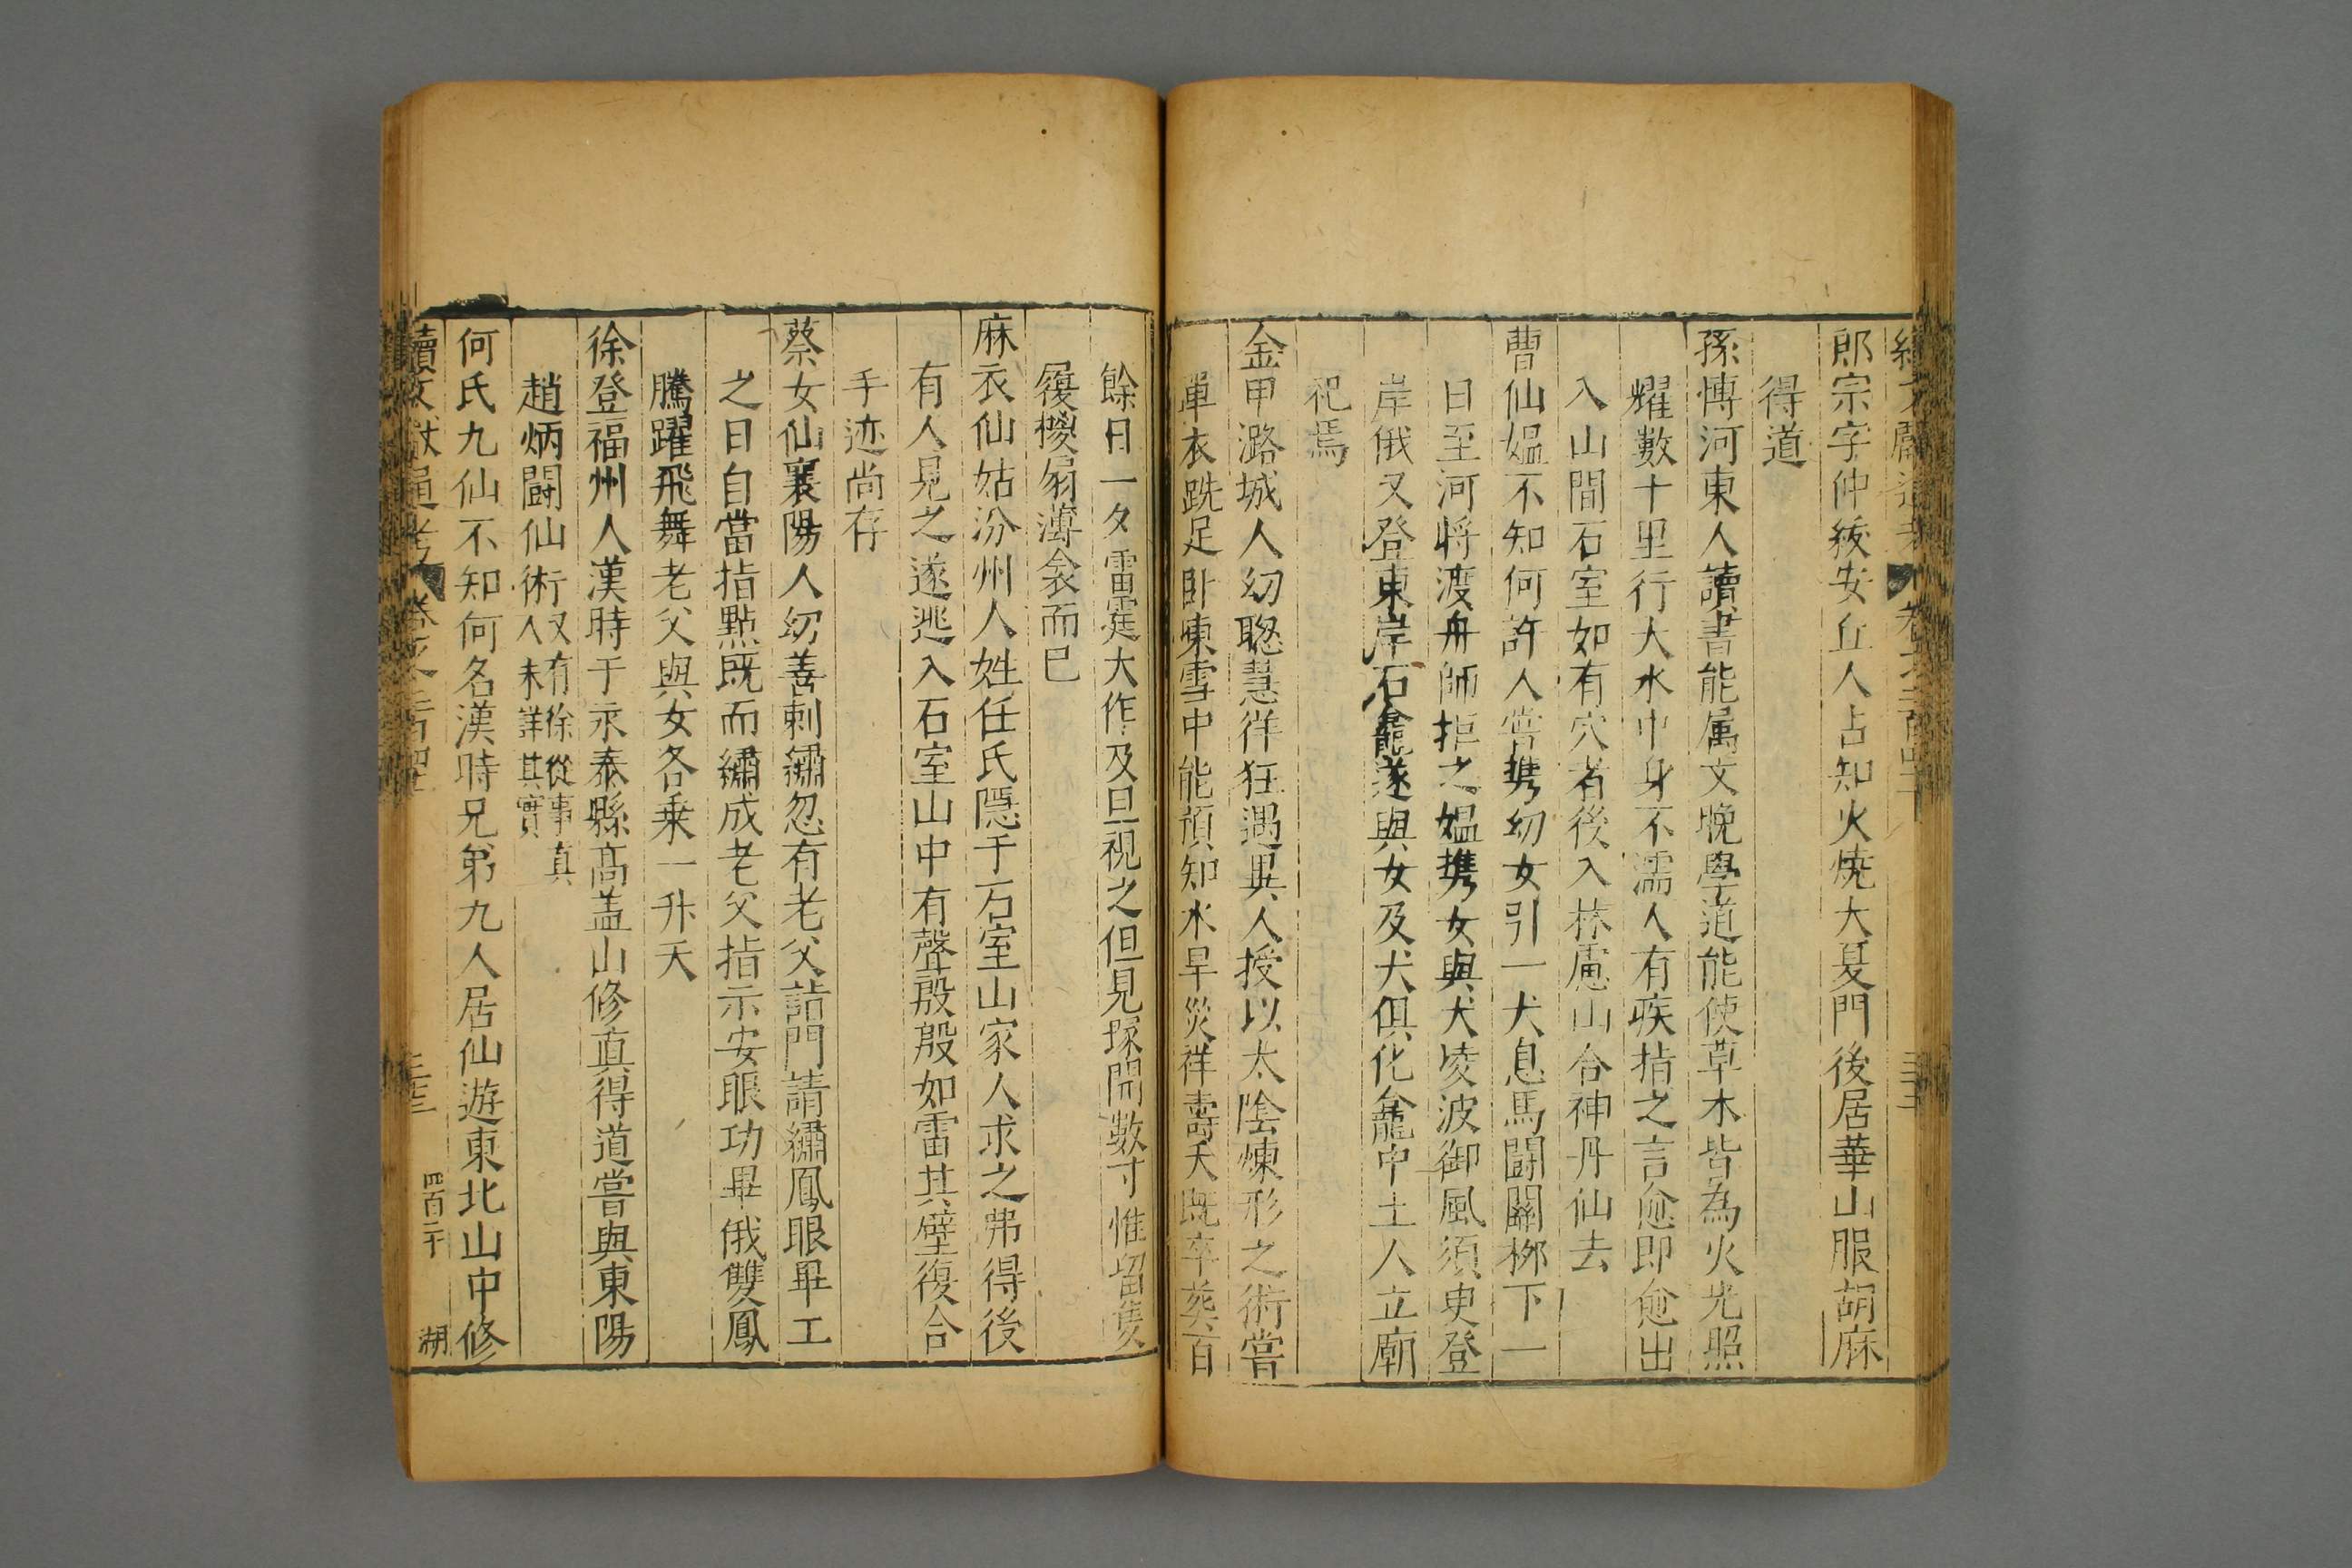 郎宗字仲綏安丘人占知火燒大夏門後居華山服胡麻
得道
孫博河東人讀書能属文晚學道能使草木皆為火光照
耀數十里行大水中身不濡人有疾指之言愈即愈出
入山間石室如有穴者後入林慮山合神丹仙去
曹仙媪不知何許人嘗携幼女引一犬息馬鬬關栁下一
日至河将渡舟師拒之媪携女與犬凌波御風須臾登
岸俄又登東岸石龕遂與女及犬俱化龕中土人立廟
祀焉
金甲潞城人幼聦慧徉狂遇異人授以太陰煉形之術嘗
單衣跣足卧凍雪中能預知水旱災祥壽夭既卒葬百
餘日一夕雷霆大作及旦視之但見塚開數寸惟留隻
履椶扇薄衾而已
麻衣仙姑汾州人姓任氏隱于石室山家人求之弗得後
有人見之遂逃入石室山中有聲殷殷如雷其壁復合
手迹尚存
蔡女仙襄陽人幼善刺繡忽有老父詣門請繡鳳眼畢工
之日自當指點既而繡成老父指示安眼功畢俄雙鳳
騰躍飛舞老父與女各乗一升天
徐登福州人漢時于永泰縣髙盖山修真得道嘗與東陽
趙炳鬬仙術又有徐從事真人未詳其實
何氏九仙不知何名漢時兄弟九人居仙遊東北山中修
續文獻通考 卷之二百四十 三十三 四百二十 湖